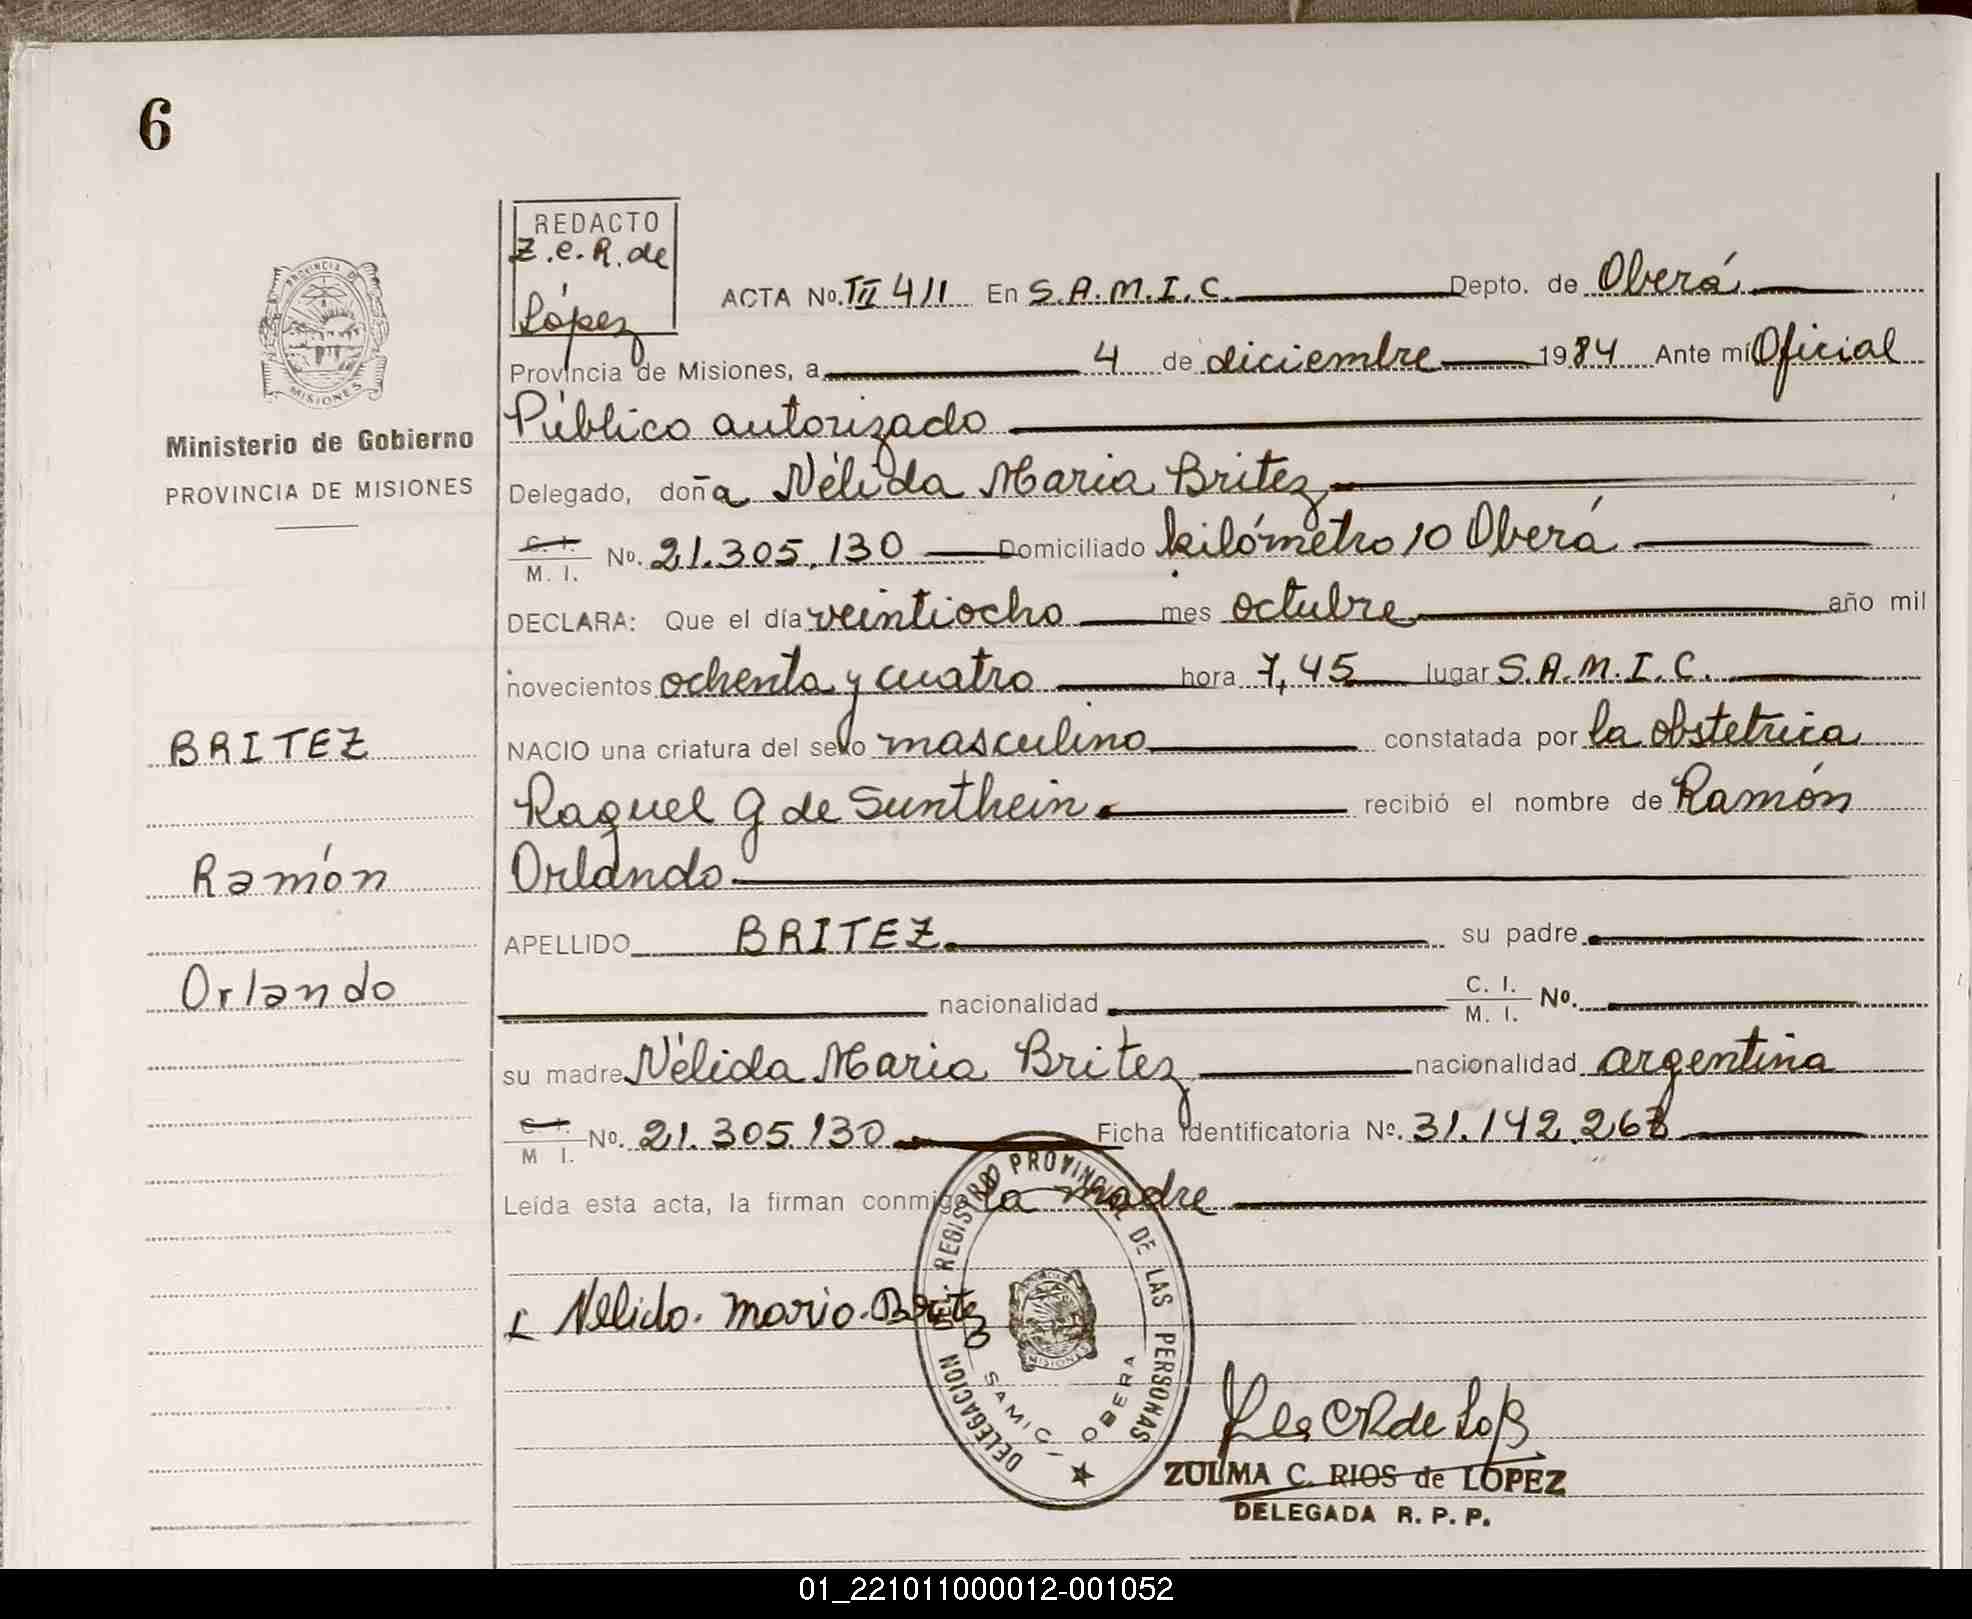 6
REDACTO
Z.C.R. de
López
PROVINCIA DE
MISIONES
Ministerio de Gobierno
PROVINCIA DE MISIONES
BRITEZ
Ramón
Orlando
ACTA No. TIII 411 En S.A.M.I.C. Depto. de Oberá
Provincia de Misiones, a 4 de diciembre 1984 Ante mí Oficial
Público autorizado
Delegado, doña Nélida Maria Britez
C. I. / M. I. No. 21.305.130 Domiciliado kilómetro 10 Oberá
DECLARA: Que el día veintiocho mes octubre año mil
novecientos ochenta y cuatro hora 7,45 lugar S.A.M.I.C.
NACIO una criatura del sexo masculino constatada por la obstetrica
Raquel G de Sunthein recibió el nombre de Ramón
Orlando
APELLIDO BRITEZ su padre
nacionalidad C. I. / M. I. No.
su madre Nélida Maria Britez nacionalidad argentina
C. I. / M I. No. 21.305.130 Ficha Identificatoria No. 31.142.268
Leída esta acta, la firman conmigo la madre
Nelida Maria Britez
DELEGACION DEL REGISTRO PROVINCIAL DE LAS PERSONAS
SAMIC - OBERA
MISIONES
ZULMA C. RIOS de LOPEZ
DELEGADA R. P. P.
01_221011000012-001052